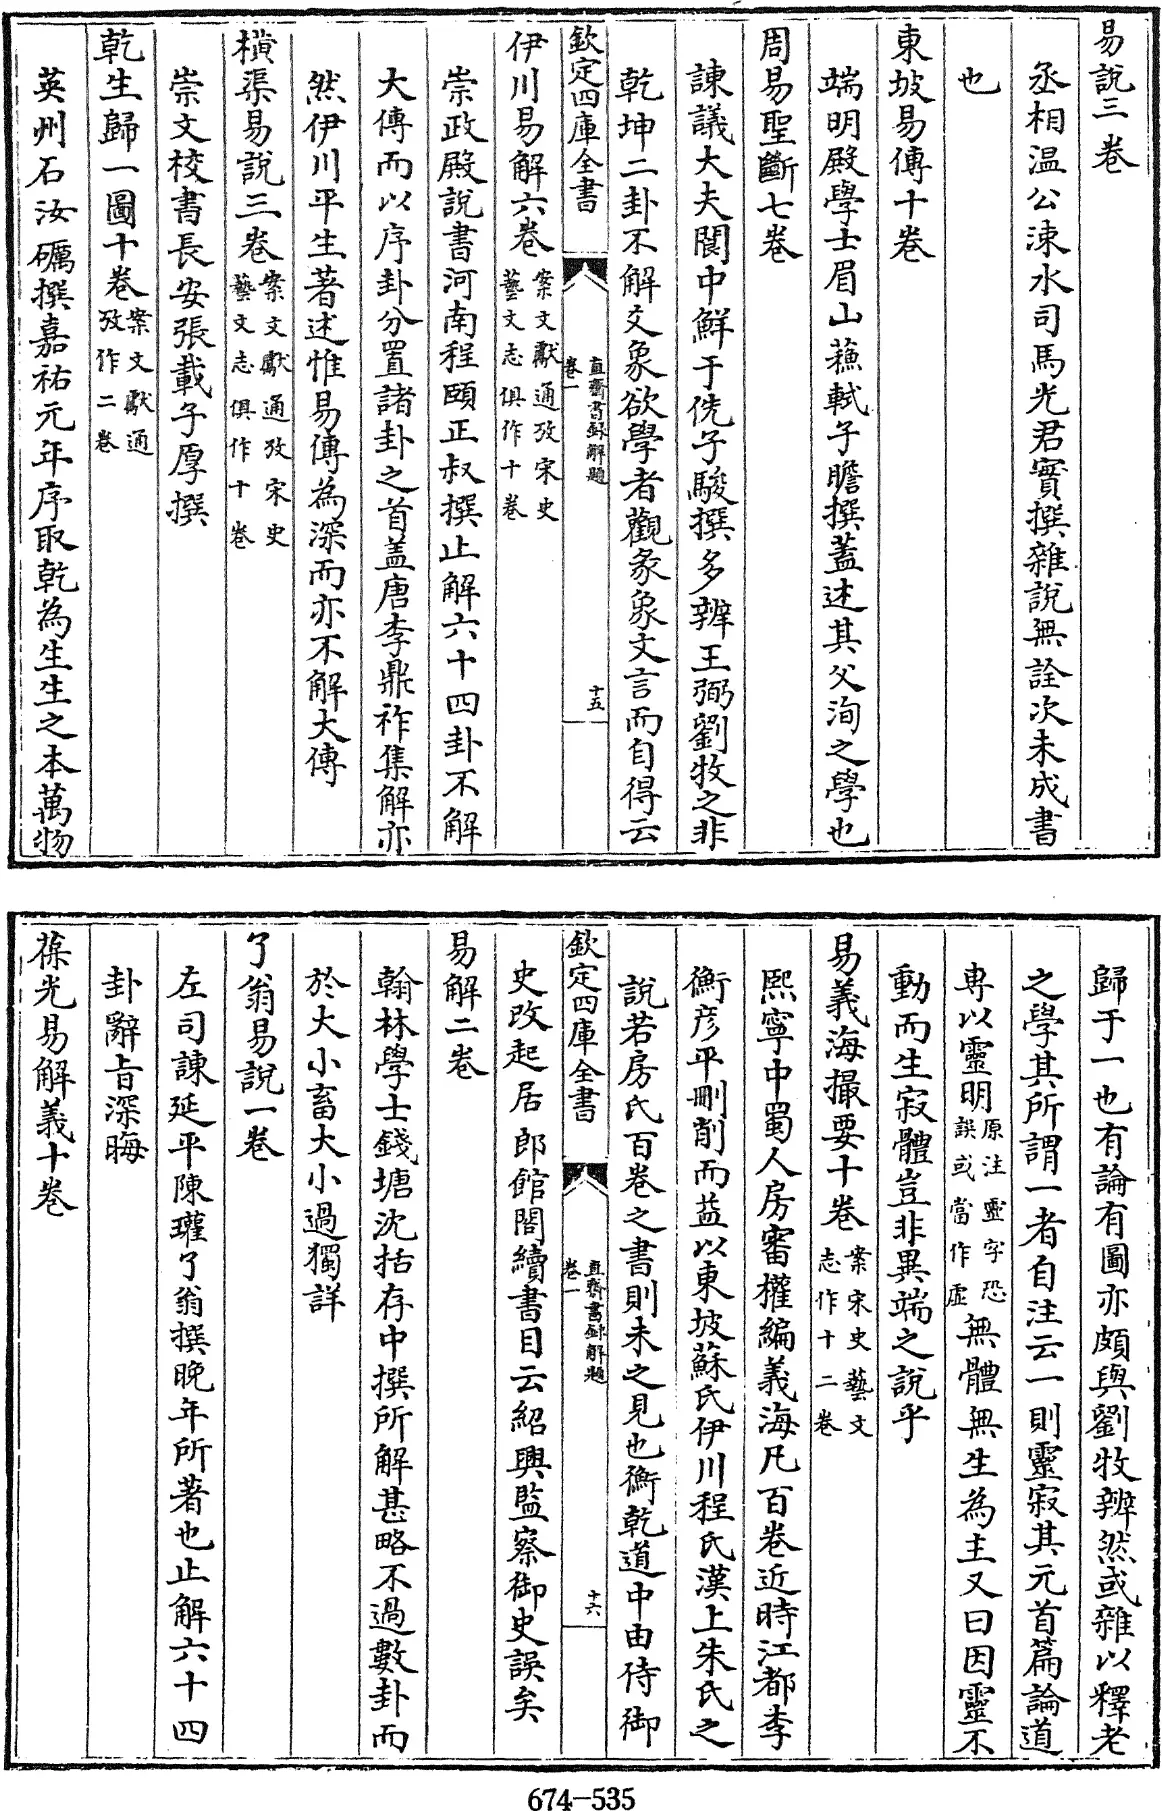 易說三卷
丞相温公涑水司馬光君實撰雜說無詮次未成書
也
東坡易傳十卷
端明殿學士眉山蘓軾子瞻撰蓋述其父洵之學也
周易聖斷七卷
諫議大夫閬中鮮于侁子駿撰多辨王弼劉牧之非
乾坤二卦不解爻象欲學者觀彖象文言而自得云
欽定四庫全書
直齋書錄解題
卷一
十五
伊川易解六卷案文獻通攷宋史
藝文志俱作十卷
崇政殿說書河南程頤正叔撰止解六十四卦不解
大傳而以序卦分置諸卦之首盖唐李鼎祚集解亦
然伊川平生著述惟易傳為深而亦不解大傳
橫渠易說三卷案文獻通攷宋史
藝文志俱作十卷
崇文校書長安張載子厚撰
乾生歸一圖十卷案文獻通
攷作二卷
英州石汝礪撰嘉祐元年序取乾為生生之本萬物
歸于一也有論有圖亦頗與劉牧辨然或雜以釋老
之學其所謂一者自注云一則靈寂其元首篇論道
專以靈明原注靈字恐
誤或當作虛無體無生為主又曰因靈不
動而生寂體豈非異端之說乎
易義海撮要十卷案宋史藝文
志作十二卷
熙寧中蜀人房審權編義海凡百卷近時江都李
衡彦平刪削而益以東坡蘇氏伊川程氏漢上朱氏之
說若房氏百卷之書則未之見也衡乾道中由侍御
欽定四庫全書
直齋書錄解題
卷一
十六
史改起居郎館閣續書目云紹興監察御史誤矣
易解二卷
翰林學士錢塘沈括存中撰所解甚略不過數卦而
於大小畜大小過獨詳
了翁易說一卷
左司諫延平陳瓘了翁撰晚年所著也止解六十四
卦辭旨深晦
葆光易解義十卷
674-535